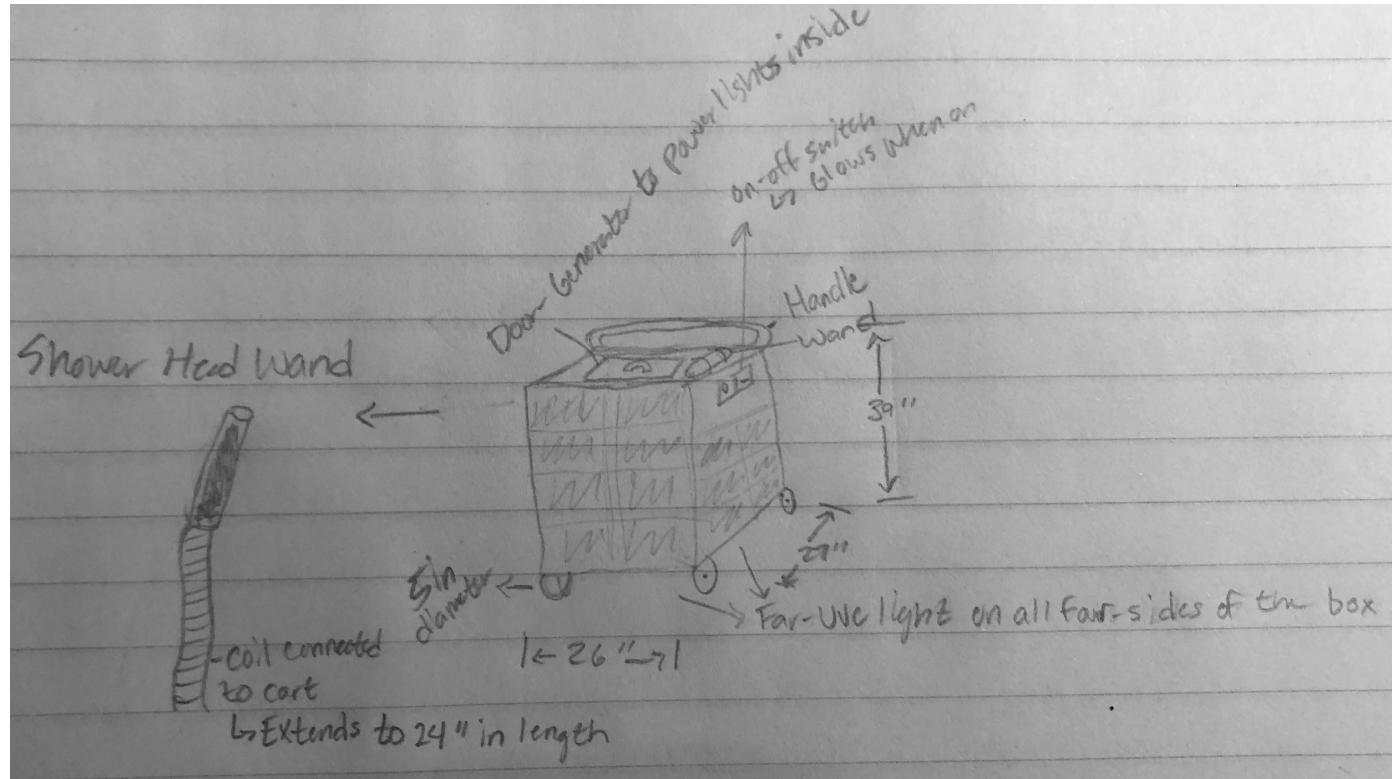 Door- Generator to power lights inside
on-off switch
↳ Glows when on
Handle
Wand
Shower Head Wand
39"
27"
5in
diameter
Far-UVC light on all four-sides of the box
26"
-coil connected
to cart
↳ Extends to 24" in length